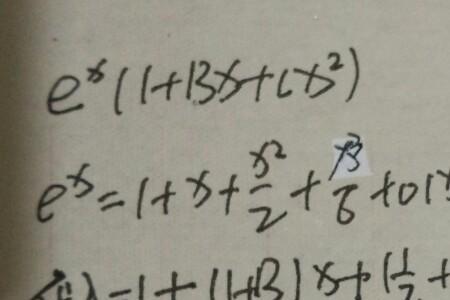 e^x(1+Bx+Cx^2)
e^x=1+x+\frac{x^2}{2}+\frac{x^3}{6}+o(x
=1+(1+B)x+(\frac{1}{2}+